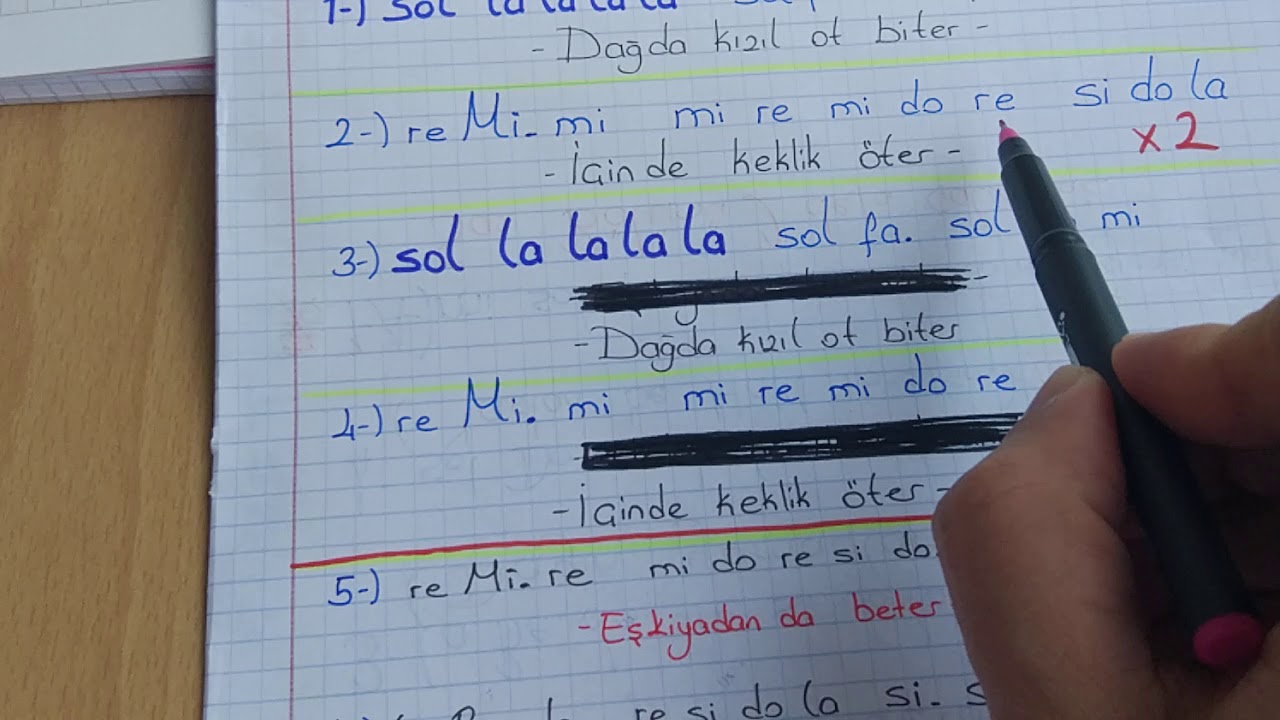 1-) sol la la la la
- Dağda kızıl ot biter -
2-) re Mi. mi mi re mi do re si do la
- İçinde keklik öter -
x2
3-) sol la la la la sol fa. sol mi
- Dağda kızıl ot biter
4-) re Mi. mi mi re mi do re
- İçinde keklik öter -
5-) re Mi. re mi do re si do
- Eşkiyadan da beter
re si do la si.